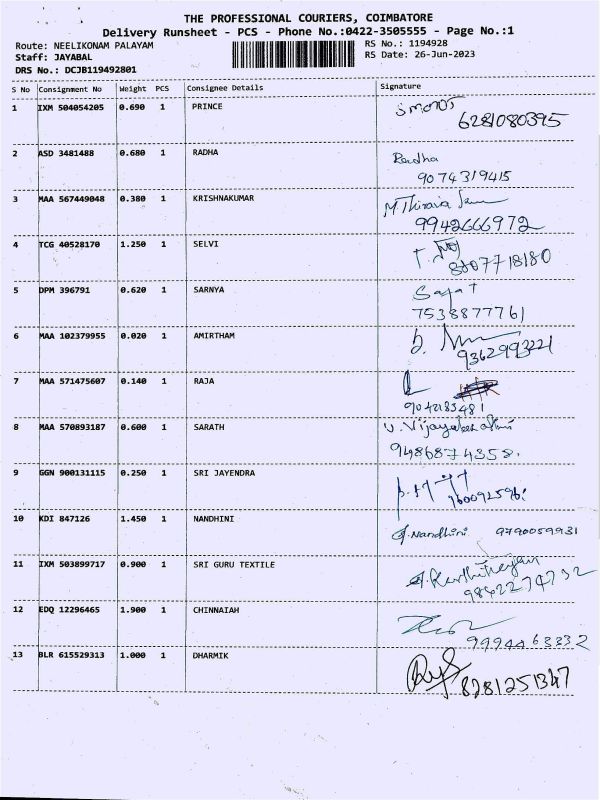 THE PROFESSIONAL COURIERS, COIMBATORE
Delivery Runsheet - PCS - Phone No.:0422-3505555 - Page No.:1
Route: NEELIKONAM PALAYAM RS No.: 1194928
Staff: JAYABAL RS Date: 26-Jun-2023
DRS No.: DCJB119492801
S No Consignment No Weight PCS Consignee Details Signature
1 IXM 504054205 0.690 1 PRINCE
6281080395
2 ASD 3481488 0.680 1 RADHA Radha
9074319415
3 MAA 567449048 0.380 1 KRISHNAKUMAR
9942666972
4 TCG 40528170 1.250 1 SELVI
8807718180
5 DPM 396791 0.620 1 SARNYA
7538877761
6 MAA 102379955 0.020 1 AMIRTHAM
9362993221
7 MAA 571475607 0.140 1 RAJA
9042183481
8 MAA 570893187 0.600 1 SARATH
9486874358.
9 GGN 900131115 0.250 1 SRI JAYENDRA
10 KDI 847126 1.450 1 NANDHINI Nandhini 9790059931
11 IXM 503899717 0.900 1 SRI GURU TEXTILE
9842274732
12 EDQ 12296465 1.900 1 CHINNAIAH
9994463332
13 BLR 615529313 1.000 1 DHARMIK
8281251347